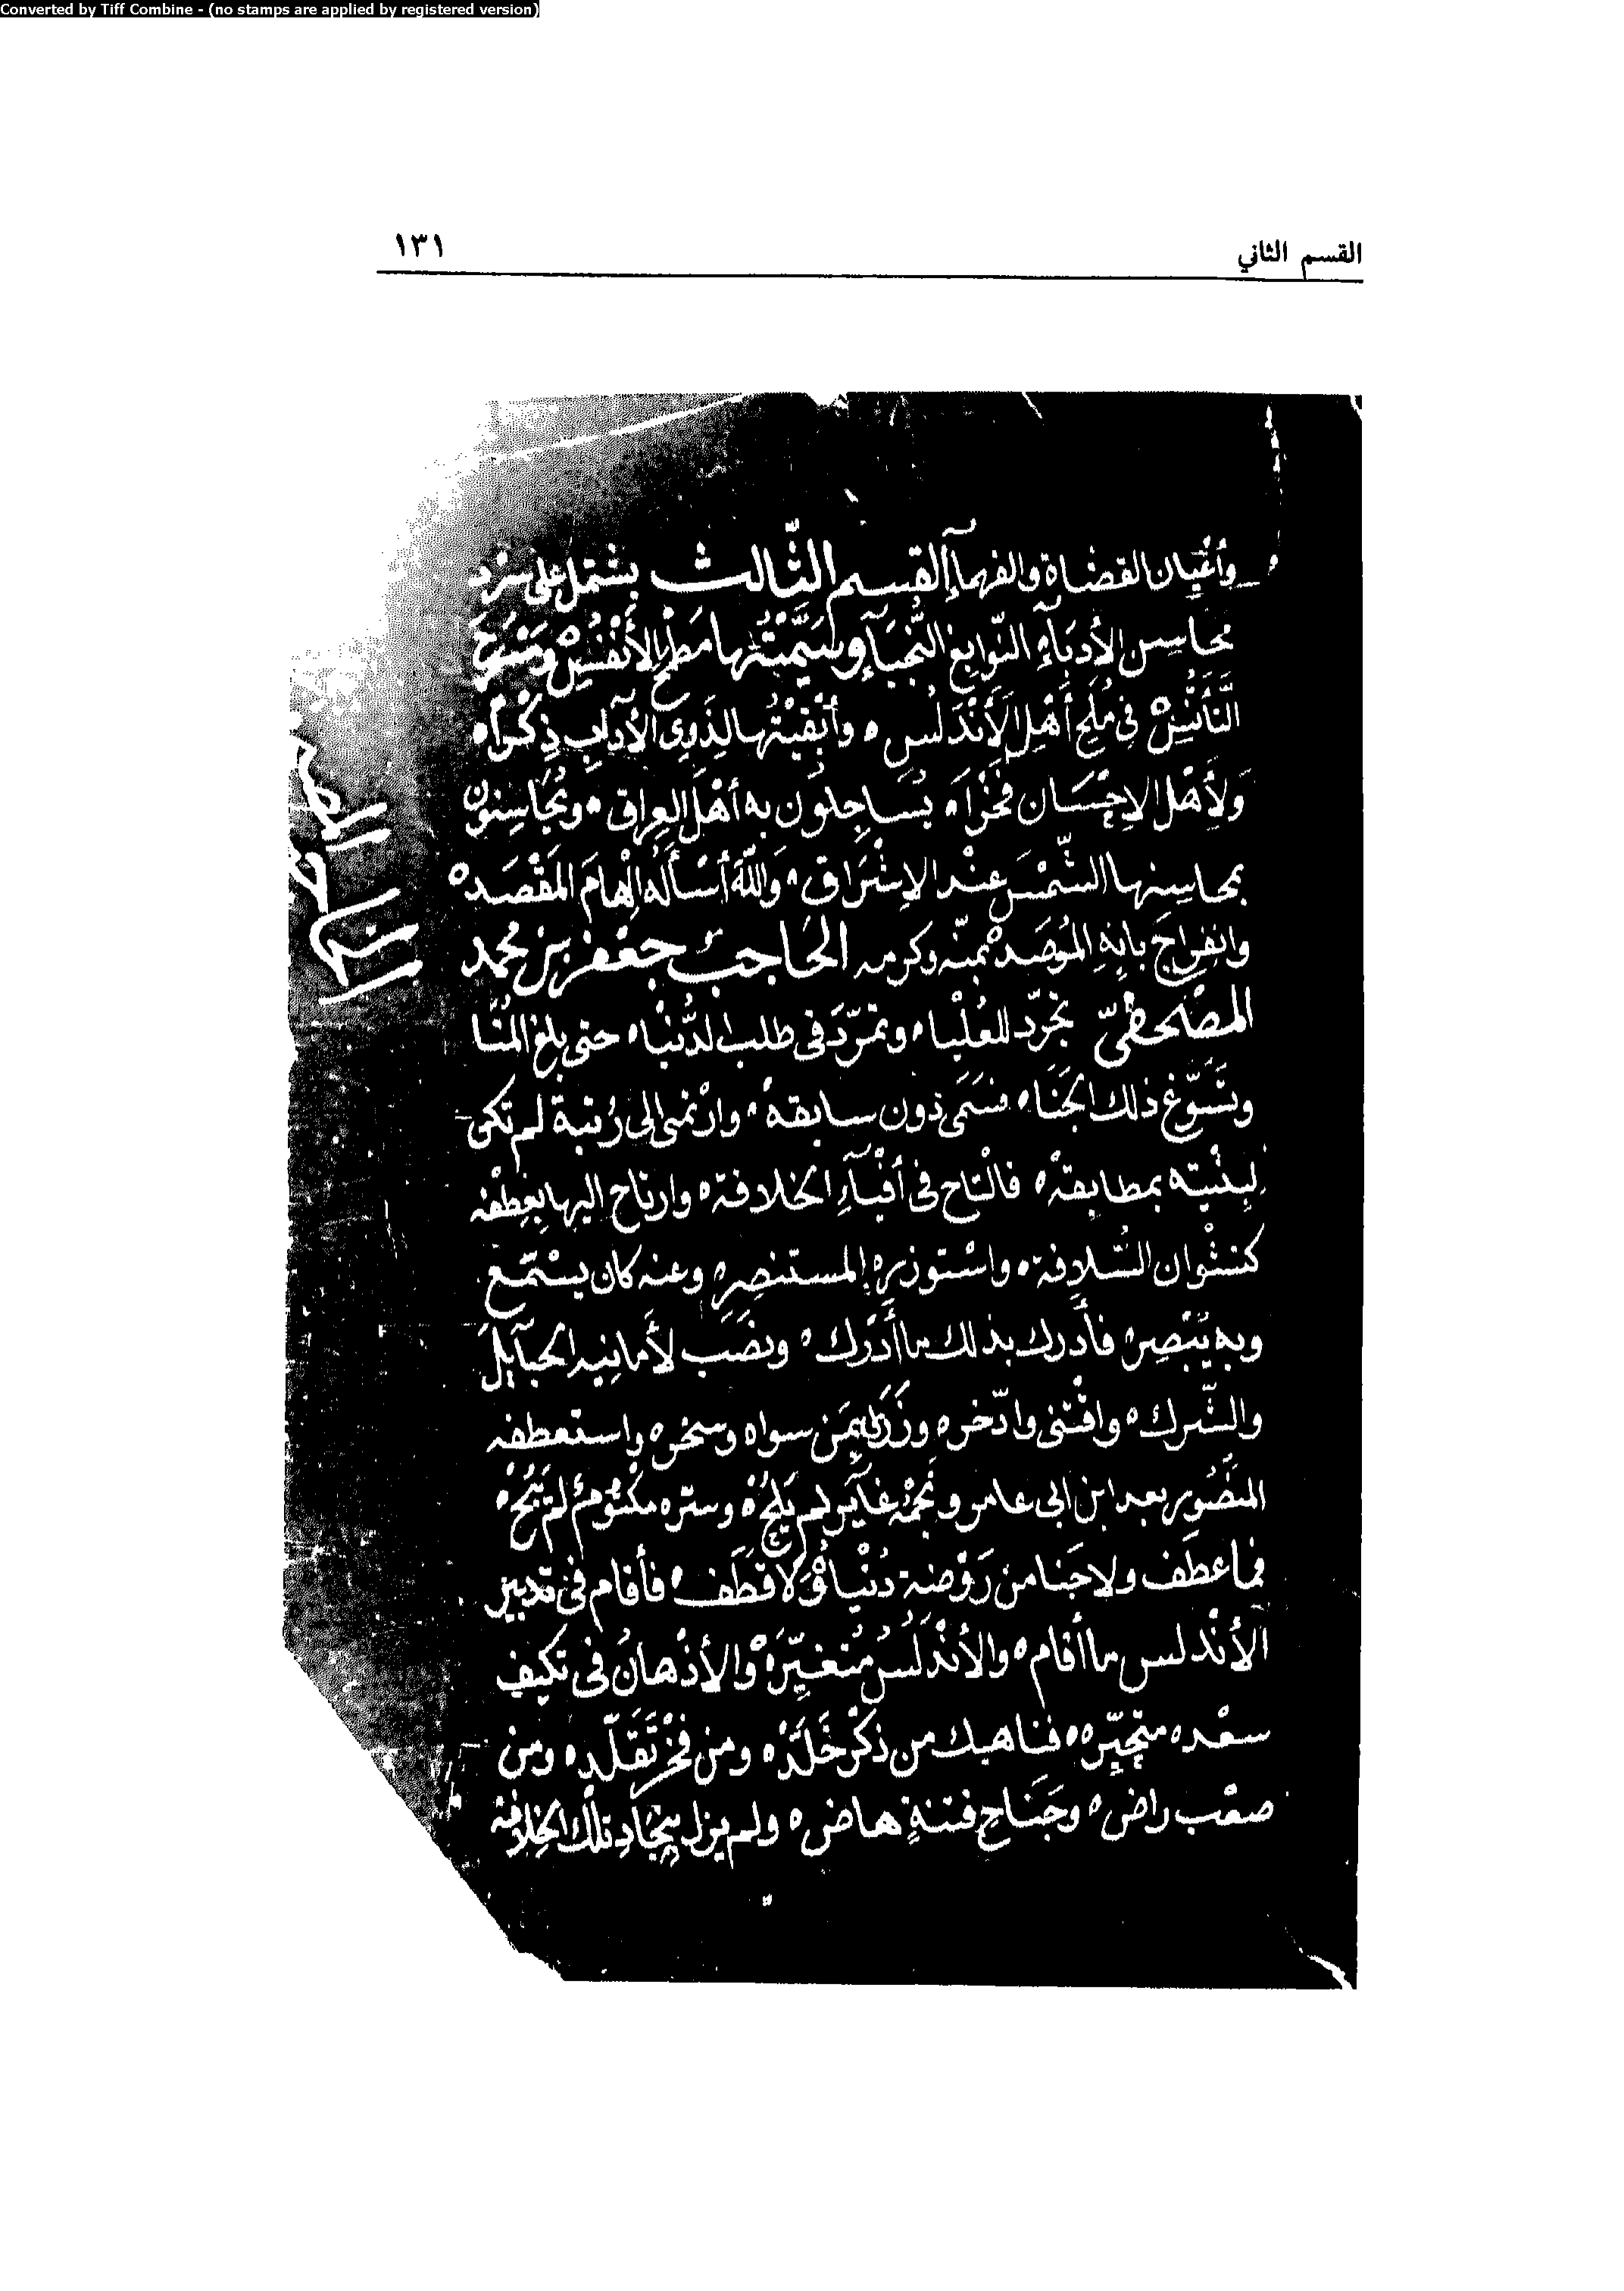 Converted by Tiff Combine - (no stamps are applied by registered version)
القسم الثاني ١٣١
وأعْيان القضاة والفهمآءِ القسم الثّالث يشتمل على سرْد
محاسن الأدبَآءِ النّوابغ النُّجَبَآءِ وسَمَّيْتُها مَطْمح الأَنْفُسْ ومَسْرَحَ
التَّأَنُّسْ فى مُلَحِ أَهْلِ الأَنْدَلُسِ ه وأبْقَيْتُها لِذَوِى الآدابِ ذِكْراً ه
وَلأَهْل الإحْسَان فَخْراً ه يُسَاجِلُون به أهْلَ العِراق ه ويُحَاسِنون
بمحاسِنها الشّمْسَ عِنْد الإشْرَاق ه وَاللّهَ أسْأَلُه إلْهامَ المَقْصَد ه
وانفِراجَ بابِهِ المُوصَد ه بمنّه وكرمه الحَاجب جعْفر بن محمد
المُصْحفىّ تجرّد للعُلْيا ه وتمرّدَ فى طلب الدُّنْيا ه حتى بلغ المُنَا
وتَسَوّغ ذلك الجَنَا ه فسَمَى دُون سابقهْ ه وارْتمى إلى رُتْبة لم تكن
لِبنْيته بمطابقهْ ه فالْتاح فى أفْيَآءِ الخلافة ه وارتاح اليها بعِطْفه
كنشْوان السُّلافة ه واسْتوزره المستنصِر ه وعنه كان يسْتمع
وبه يُبْصِر ه فأدرك بذلك ما أَدْرك ه ونصَب لأمانيه الحبَآيلَ
والشّرك ه واقْتنى وادّخر ه وزَرَى بمَن سواه وسخر ه واستعطفه
المنصُور بعد ابن ابى عامر ونجْمُهْ غآير لم يَلُحْ ه وستره مكْتُومٌ لم يَبُحْ ه
فما عطَف ولا جَنا من رَوْضة دُنْياهُ ولا قطَف ه فأقام فى تدبير
الأنْدلس ما أقام ه والأنْدَلُسُ مُتغيِّرَهْ والأذْهانُ فى تكيف
سعْده متحيِّره ه فناهيك من ذكْر خَلَّدَهْ ه ومن فخْر تَقَلّده ه ومن
صعْب راض ه وجَنَاحِ فتنةٍ هاض ه ولم يزل بنِجَادِ تلك الخِلافة